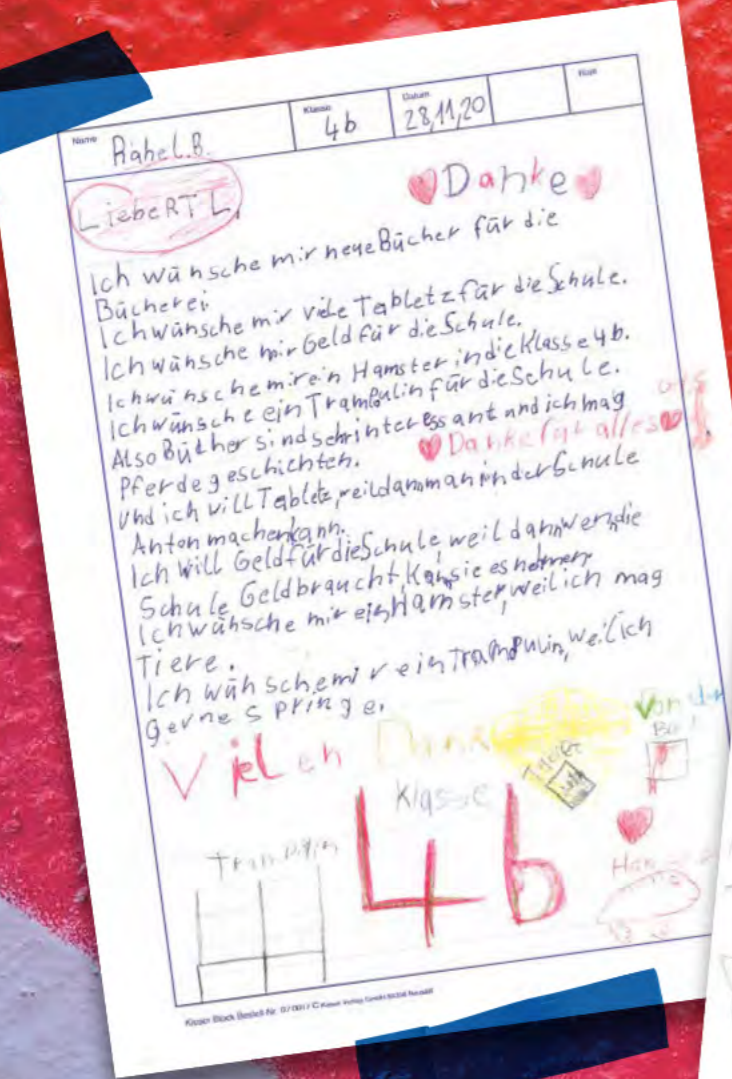 Name Rahel.B. Klasse 4b Datum 28,11,20 Note
Danke
Liebe RTL,
Ich wünsche mir neue Bücher für die
Bücherei
Ich wünsche mir viele Tabletz für die Schule.
Ich wünsche mir Geld für die Schule.
Ich wünsche mir ein Hamster in die Klasse 4b.
Ich wünsche ein Trampulin für die Schule.
Also Bücher sind sehr interessant und ich mag
Pferdegeschichten.
Danke für alles
Und ich will Tabletz, weil dann man in der Schule
Anton machen kann.
Ich will Geld für die Schule, weil dann wen die
Schule Geld braucht, kan sie es nehmen
Ich wünsche mir ein Hamster, weil ich mag
Tiere.
Ich wünsche mir ein Trampulin, weil ich
gerne springe.
Vielen Dank
Von der
Klasse
4b
Trampulin
Kieser Block Bestell-Nr.